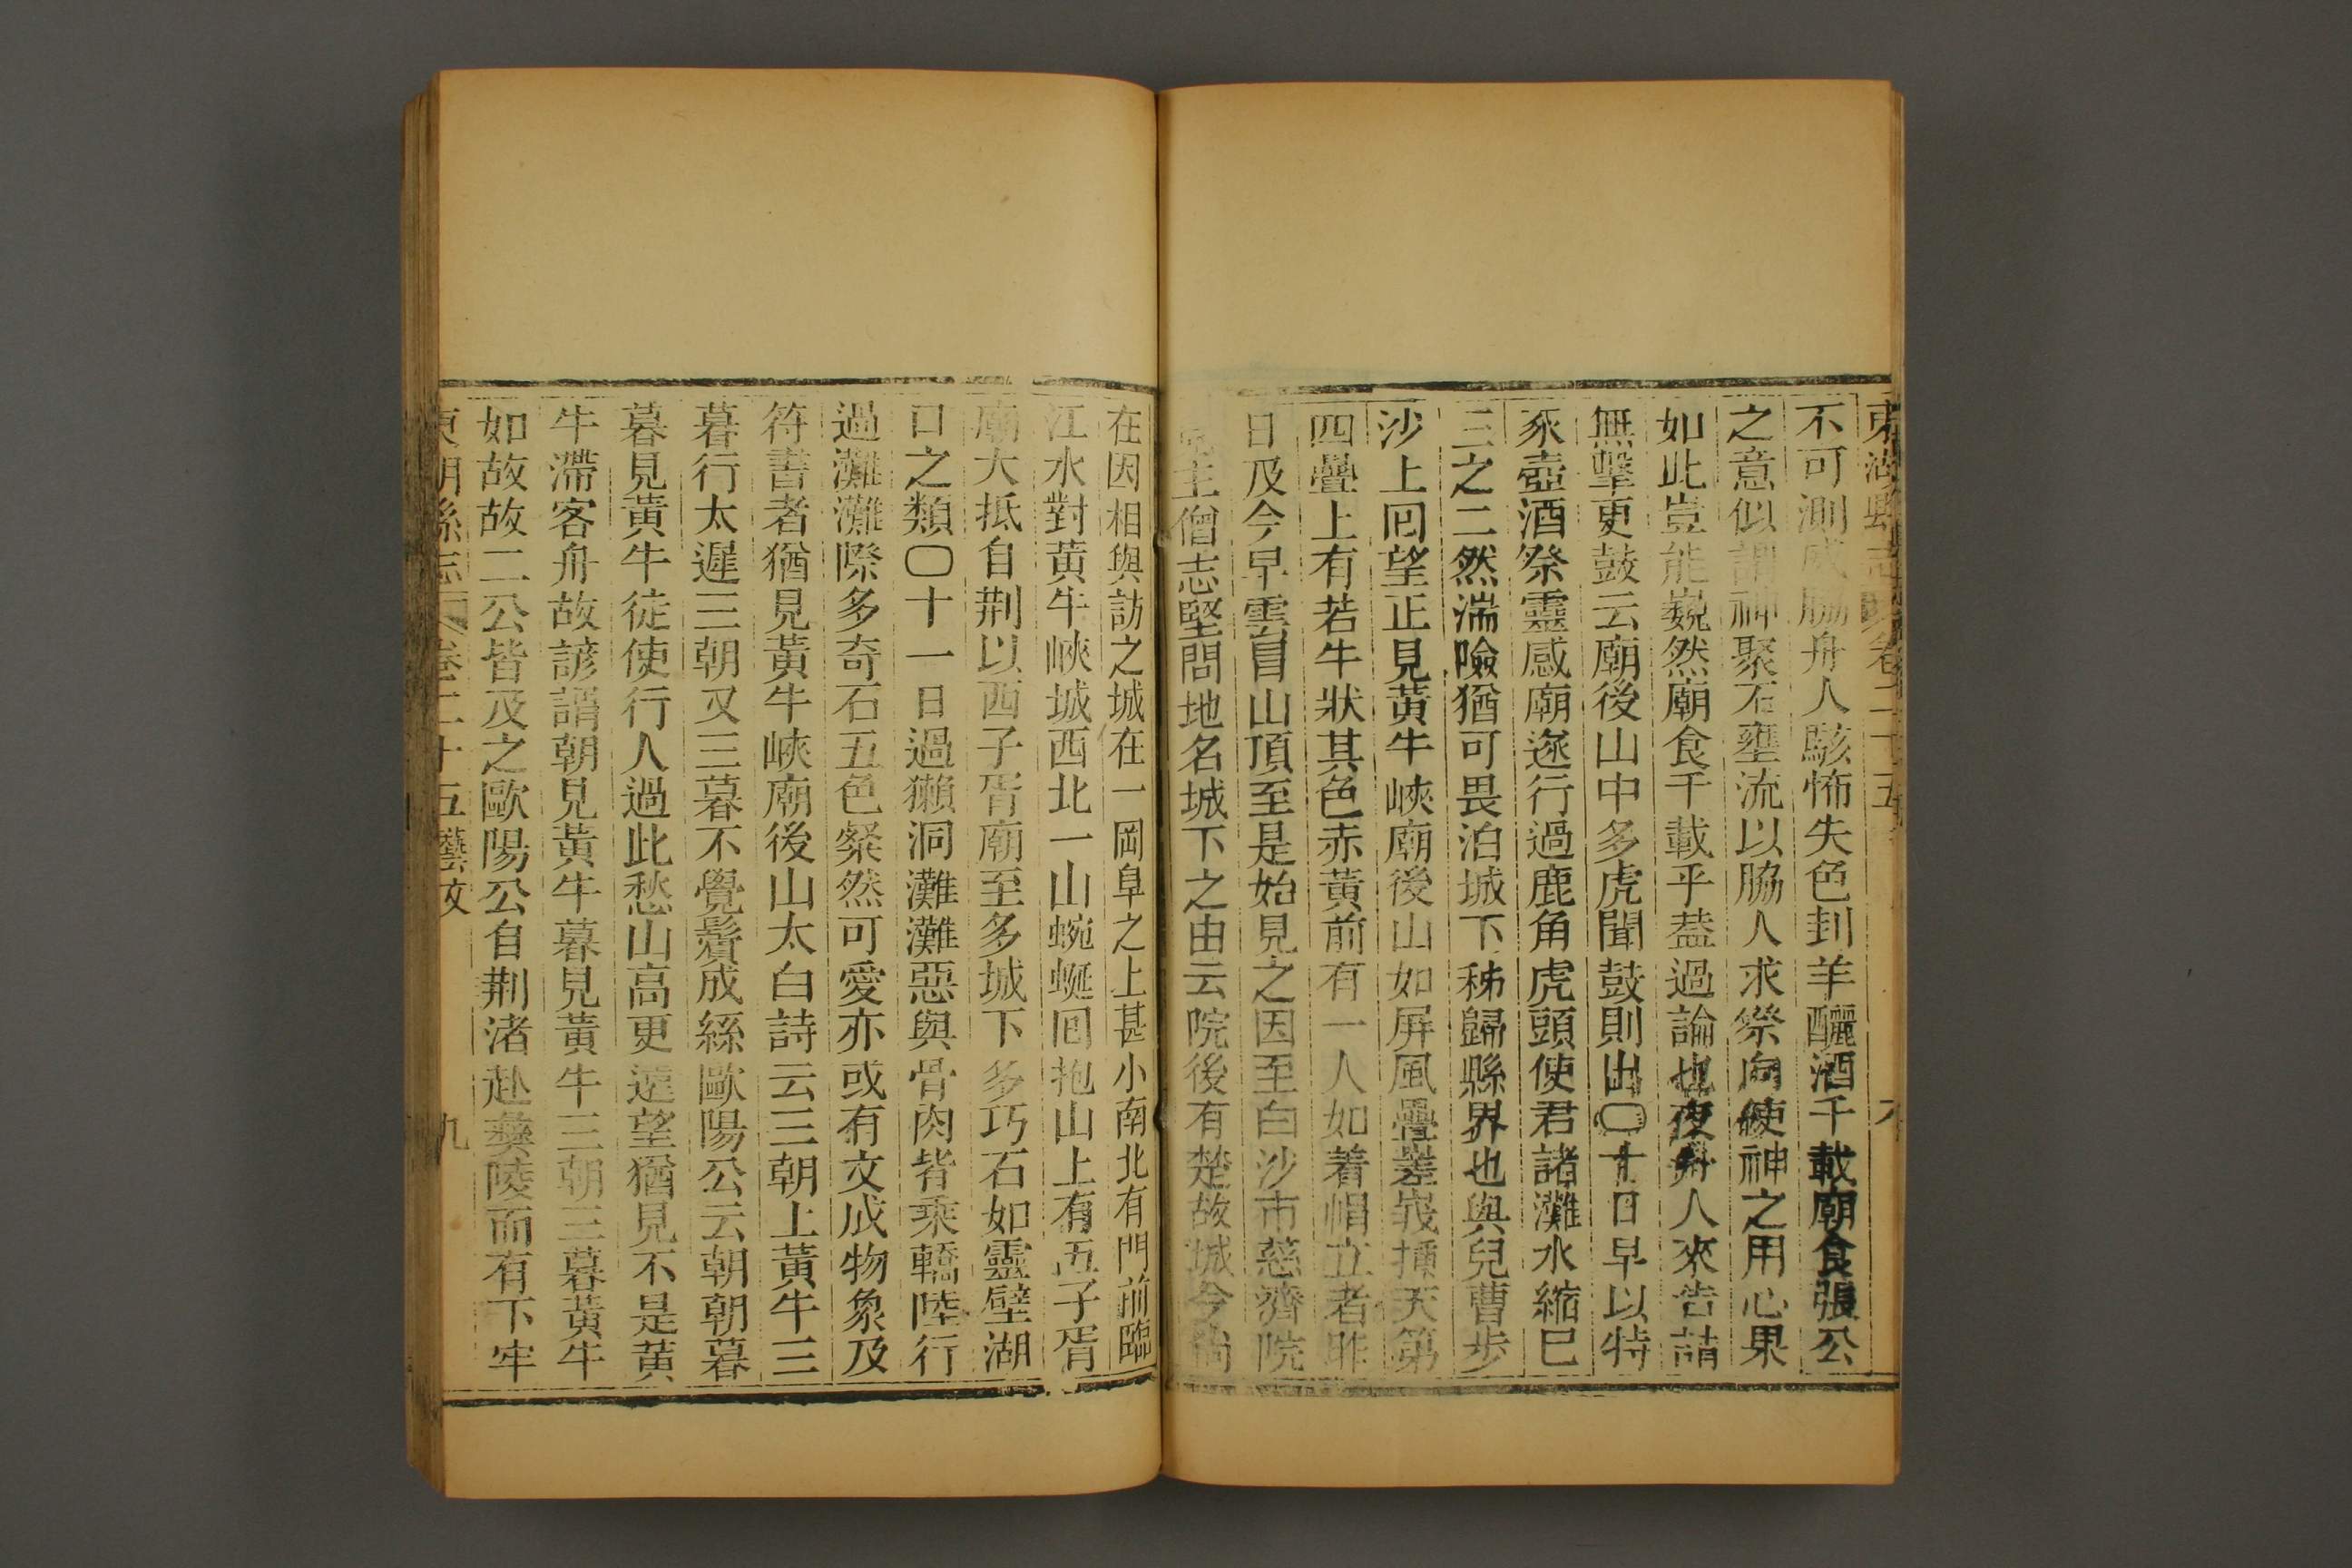 東湖縣志 卷二十五
不可測威脇舟人駭怖失色刲羊釃酒千載廟食張公
之意似謂神聚石壅流以脇人求祭向使神之用心果
如此豈能巍然廟食千載乎蓋過論也夜舟人來告請
無擊更鼓云廟後山中多虎聞鼓則出〇十日早以特
豕壺酒祭靈感廟遂行過鹿角虎頭使君諸灘水縮巳
三之二然湍險猶可畏泊城下秭歸縣界也與兒曹步
沙上囘望正見黃牛峽廟後山如屏風疊嵳峩揷天第
四疊上有若牛狀其色赤黃前有一人如着帽立者昨
日及今早雲冒山頂至是始見之因至白沙市慈濟院
主僧志堅問地名城下之由云院後有楚故城今尚
在因相與訪之城在一岡阜之上甚小南北有門前臨
江水對黃牛峽城西北一山蜿蜒囘抱山上有五子胥
廟大抵自荆以西子胥廟至多城下多巧石如靈壁湖
口之類〇十一日過獺洞灘灘惡與骨肉皆乘轎陸行
過灘灘際多奇石五色粲然可愛亦或有文成物象及
符書者猶見黃牛峽廟後山太白詩云三朝上黃牛三
暮行太遲三朝又三暮不覺鬢成絲歐陽公云朝朝暮
暮見黃牛徒使行人過此愁山高更遠望猶見不是黃
牛滯客舟故諺謂朝見黃牛暮見黃牛三朝三暮黃牛
如故故二公皆及之歐陽公自荆渚赴彝陵而有下牢
東湖縣志 卷二十五藝文 九